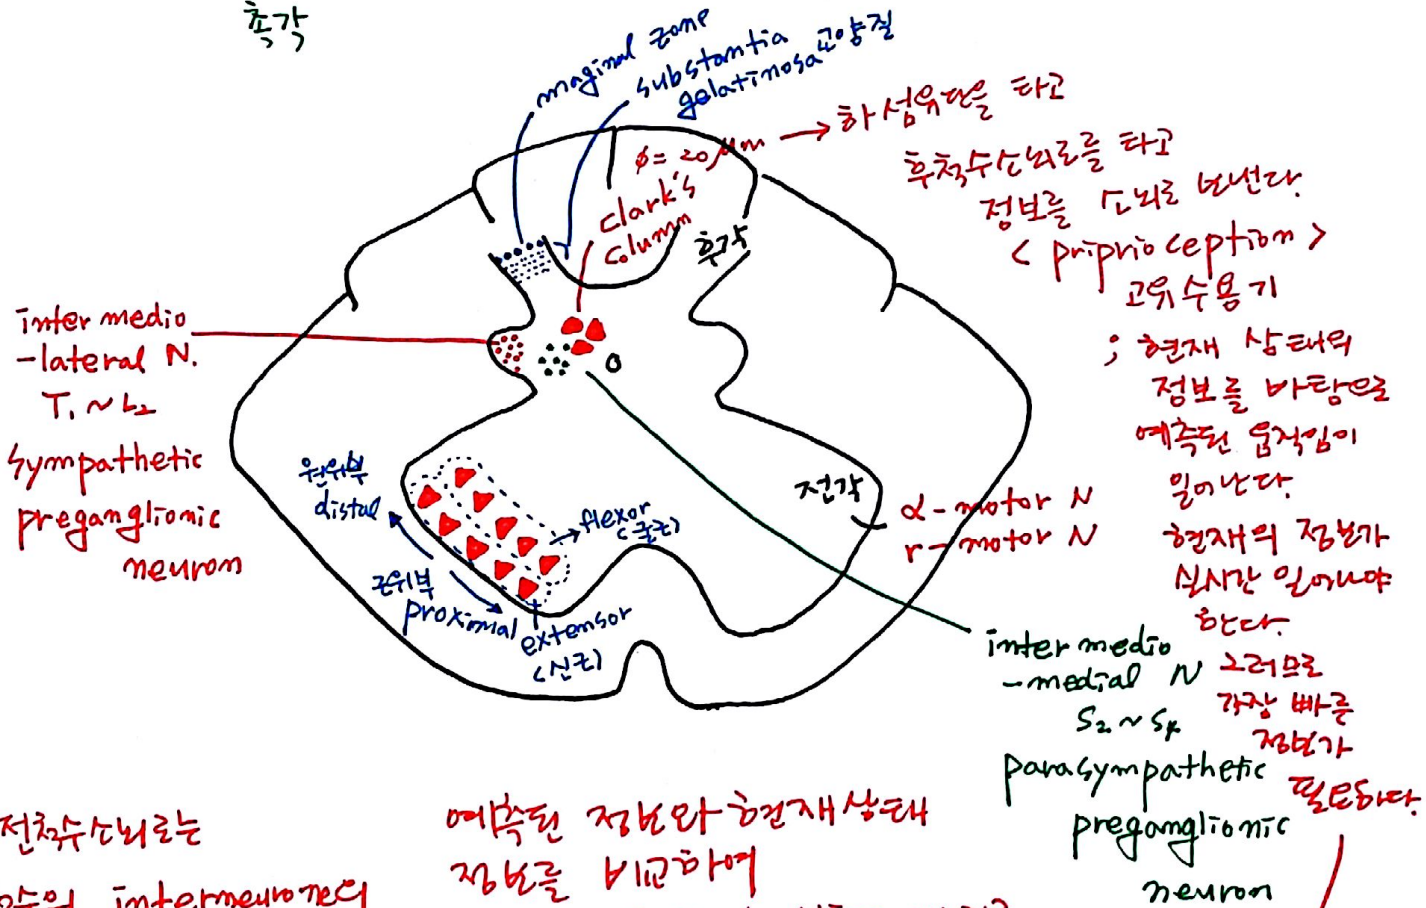 측각
marginal zone
substantia
gelatinosa 교양질
φ = 20μm → 하섬유단을 타고
후척수소뇌로를 타고
정보를 소뇌로 보낸다.
< priprioception >
고유수용기
; 현재 상태의
정보를 바탕으로
예측된 움직임이
일어난다.
현재의 정보가
실시간 일어나야
한다.
그러므로
가장 빠른
정보가
필요하다.
Clark's
Column
후각
intermedio
-lateral N.
T₁ ~ L₂
sympathetic
preganglionic
neuron
원위부
distal
근위부
proximal
flexor
(굴근)
extensor
(신근)
전각
α-motor N
r-motor N
intermedio
-medial N
S₂ ~ S₄
parasympathetic
preganglionic
neuron
전척수소뇌로는
interneurone의
예측된 정보와 현재상태
정보를 비교하여